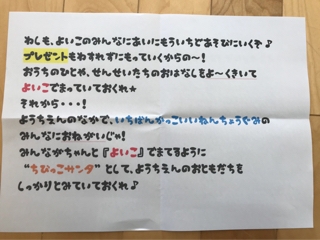 わしも、よいこのみんなにあいにもういちどあそびにいくぞ♪
プレゼントもわすれずにもっていくからの〜！
おうちのひとや、せんせいたちのおはなしをよ〜くきいて
よいこでまっていておくれ★
それから・・・！
ようちえんのなかで、いちばんかっこいいねんちょうぐみの
みんなにおねがいじゃ！
みんながちゃんと『よいこ』でまてるように
“ちびっこサンタ”として、ようちえんのおともだちを
しっかりとみていておくれ♪